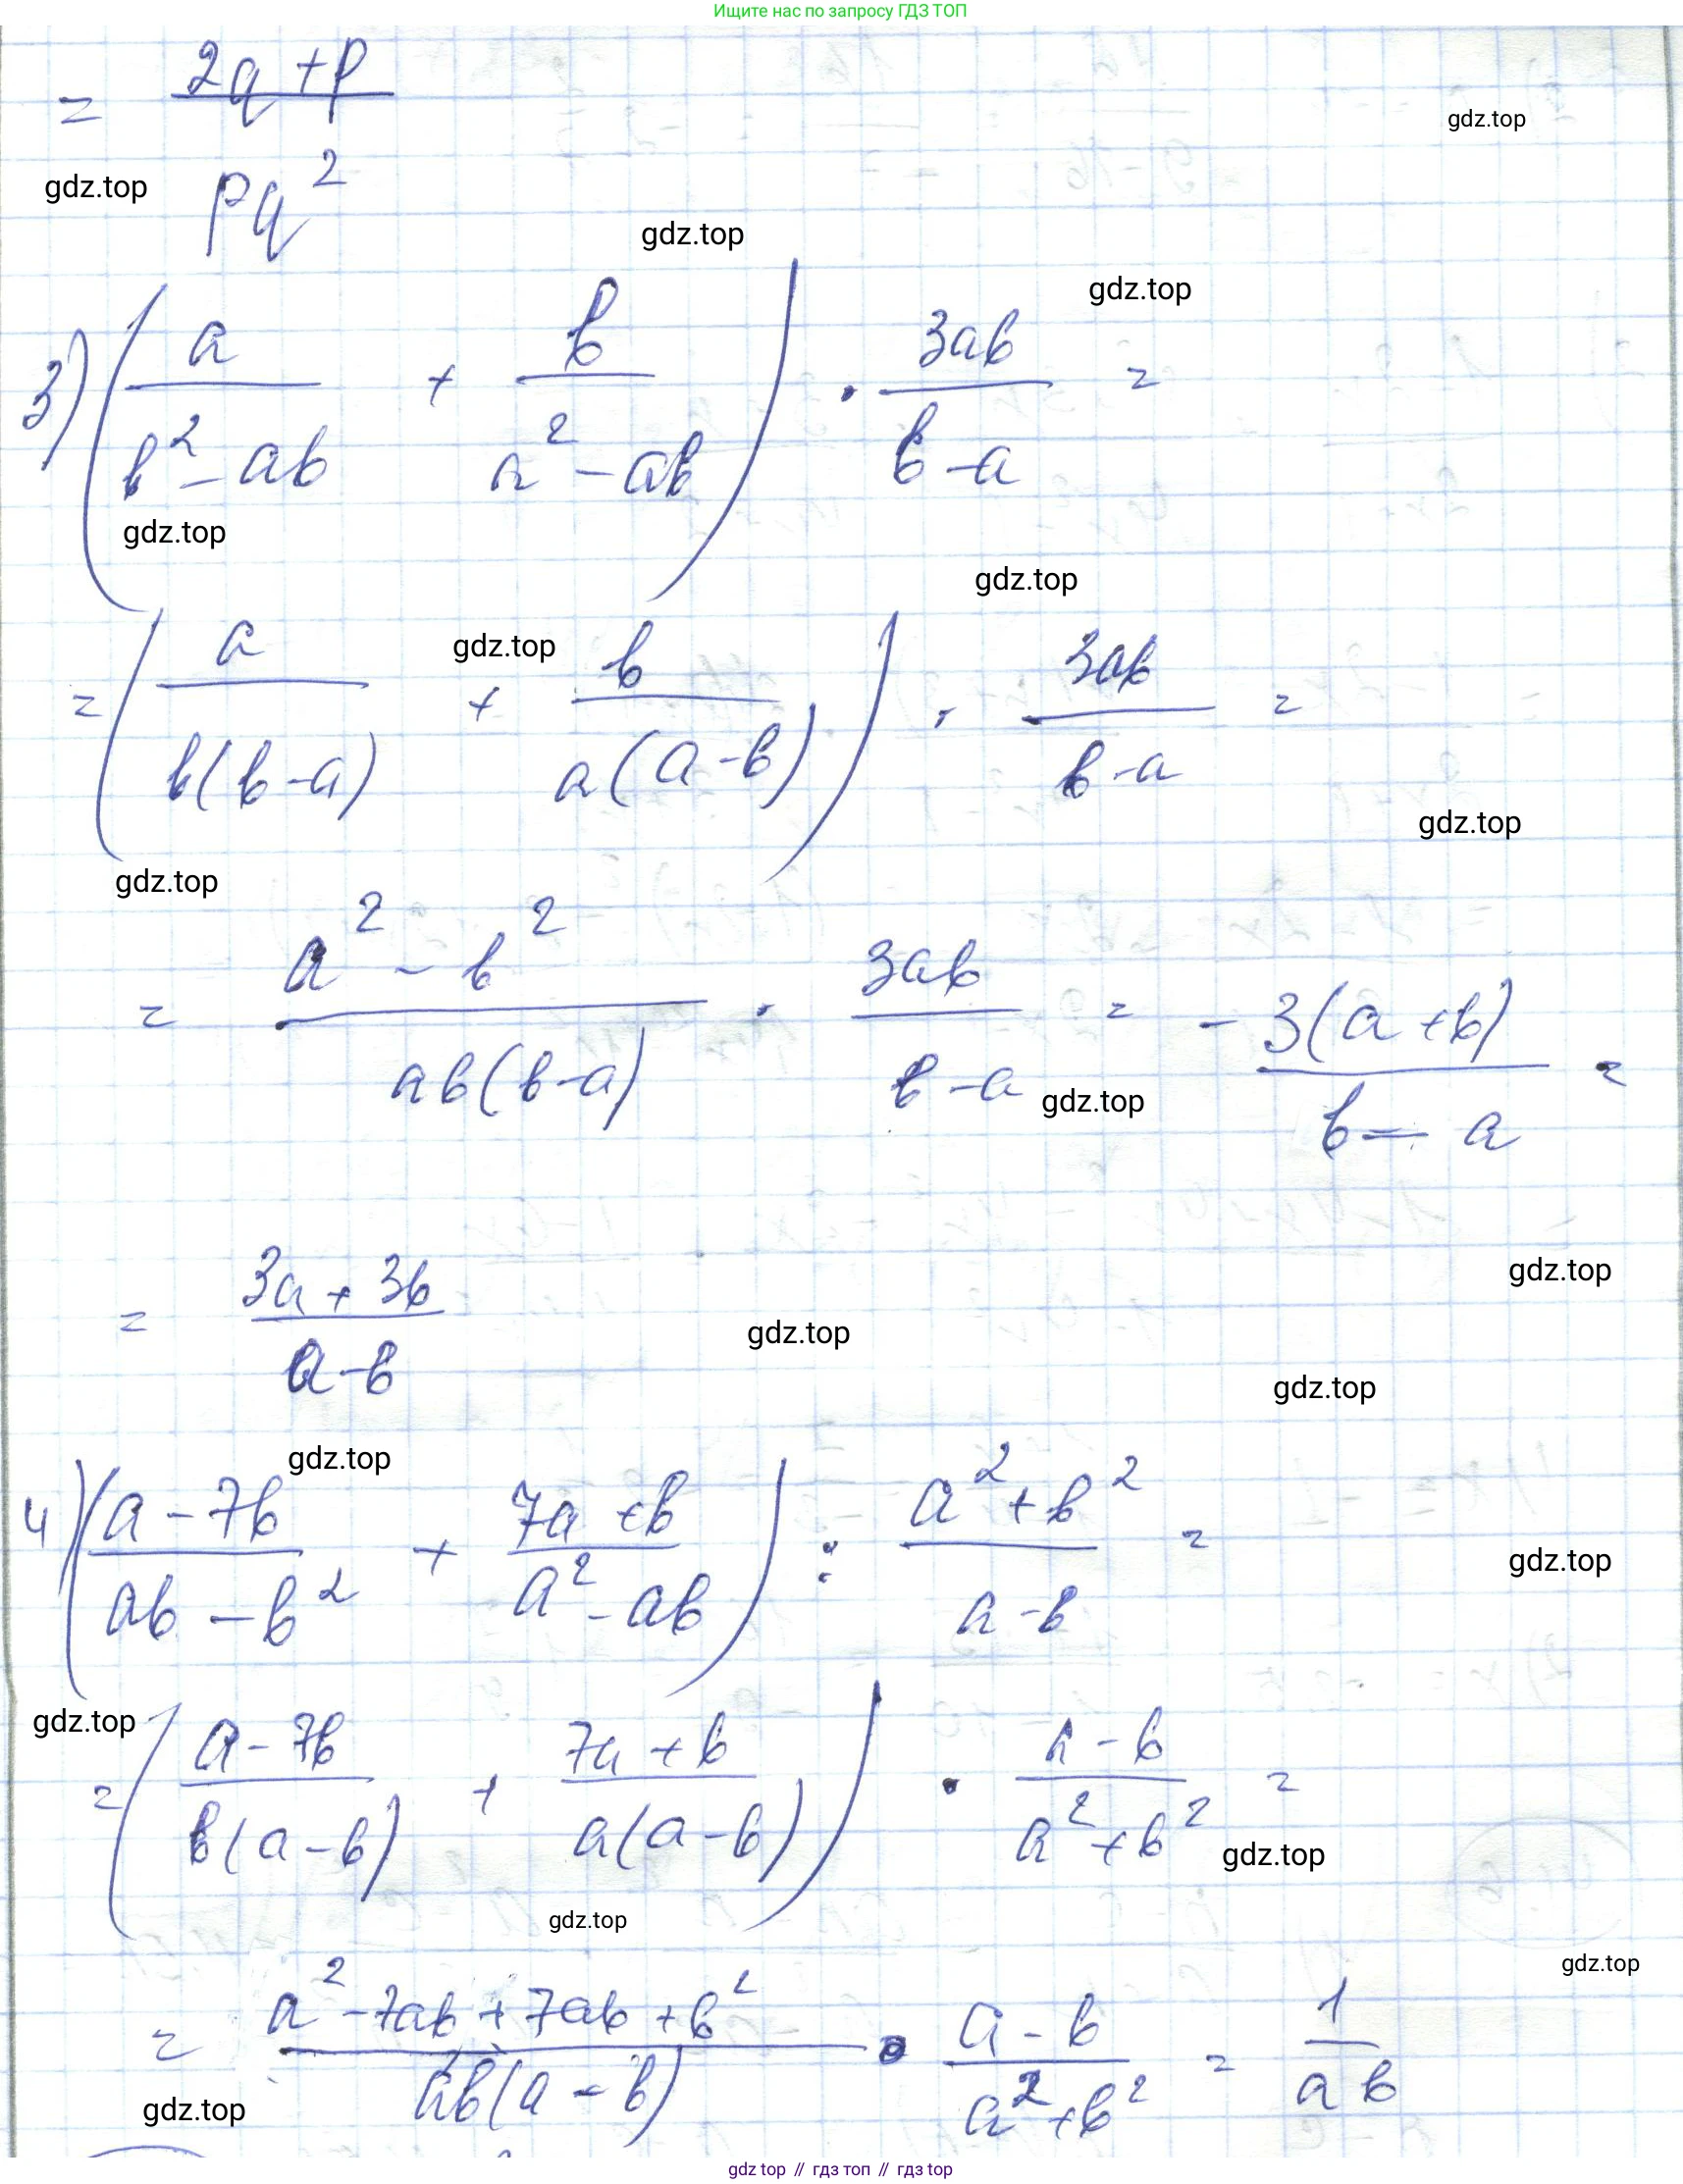 Ищите нас по запросу ГДЗ ТОП
= (2q + p) / (pq²)
gdz.top
gdz.top
gdz.top
gdz.top
3) (a / (b² - ab) + b / (a² - ab)) · 3ab / (b - a) =
gdz.top
gdz.top
= (a / (b(b - a)) + b / (a(a - b))) · 3ab / (b - a) =
gdz.top
gdz.top
gdz.top
= (a² - b²) / (ab(b - a)) · 3ab / (b - a) = - 3(a + b) / (b - a) =
gdz.top
= (3a + 3b) / (a - b)
gdz.top
gdz.top
gdz.top
gdz.top
4) ((a - 7b) / (ab - b²) + (7a + b) / (a² - ab)) : (a² + b²) / (a - b) =
gdz.top
gdz.top
= ((a - 7b) / (b(a - b)) + (7a + b) / (a(a - b))) · (a - b) / (a² + b²) =
gdz.top
gdz.top
gdz.top
= (a² - 7ab + 7ab + b²) / (ab(a - b)) · (a - b) / (a² + b²) = 1 / (ab)
gdz.top
gdz top // гдз топ // гдз top